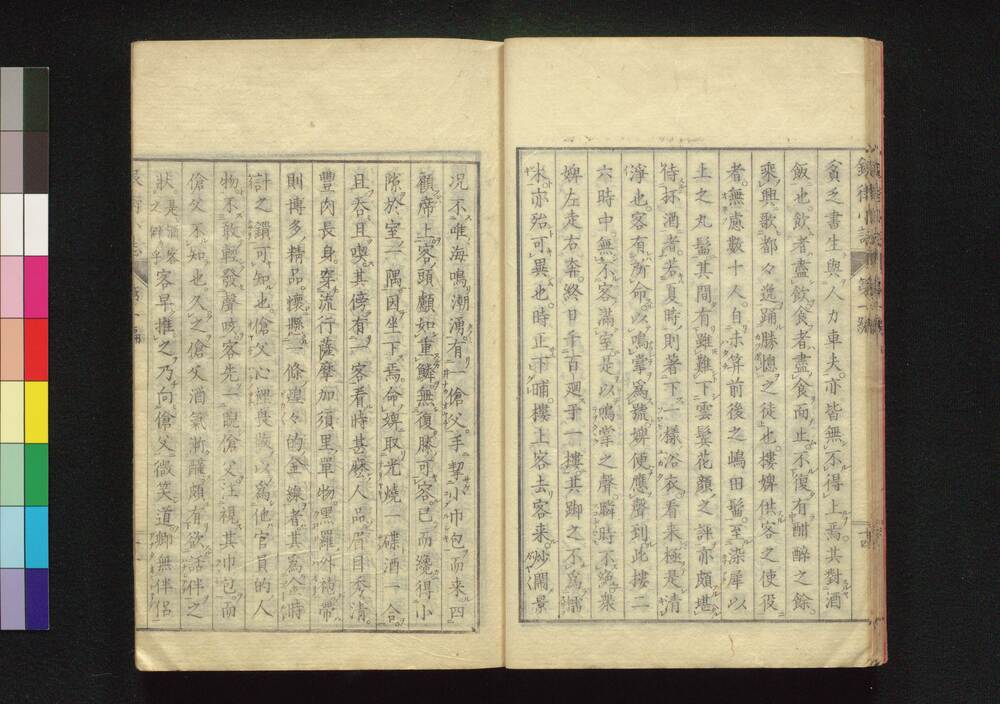 貧乏書生與人力車夫亦皆無不得上焉其對酒
飯也飲者盡飲食者盡食而止不復有酣醉之餘
乘興歌都々逸踊勝惚之徒也樓婢供客之使役
者無慮數十人自未笄前後之嶋田髷至染犀以
上之丸髷其間有雖難下雲鬟花顏之評亦頗堪
侍杯酒者若夏時則著下一樣浴衣看來極是清
淨也客有所命以鳴掌為號婢便應聲到此樓二
六時中無不客滿室是以鳴掌之聲瞬時不絕衆
婢左走右奔終日千百廻于一樓其脚之不為擂
木亦殆可異也時正下晡樓上客去客來炒鬧景
况不唯海鳴潮湧有一傖父手挈小巾包而來四
顧席上客頭顱如重鱗無復勝可容已而纔得小
隙於室一隅因坐下焉命婢取光燒一碟酒一合
且呑且喫其傍有一客看時甚麼人品眉目秀清
豐肉長身穿流行薩摩加須里單物黑羅外袍帶
則博多精品懷懸一條煌々的金線者其為金時
計之鎖可知也傖父心裡畏敬以為他官員的人
物不敢輕發聲咳客先一睨傖父注視其巾包而
傖父不知也久之傖父酒氣漸醺頗有欲話伴之
狀是酒客之癖乎客早推之乃向傖父微笑道卿無伴侶